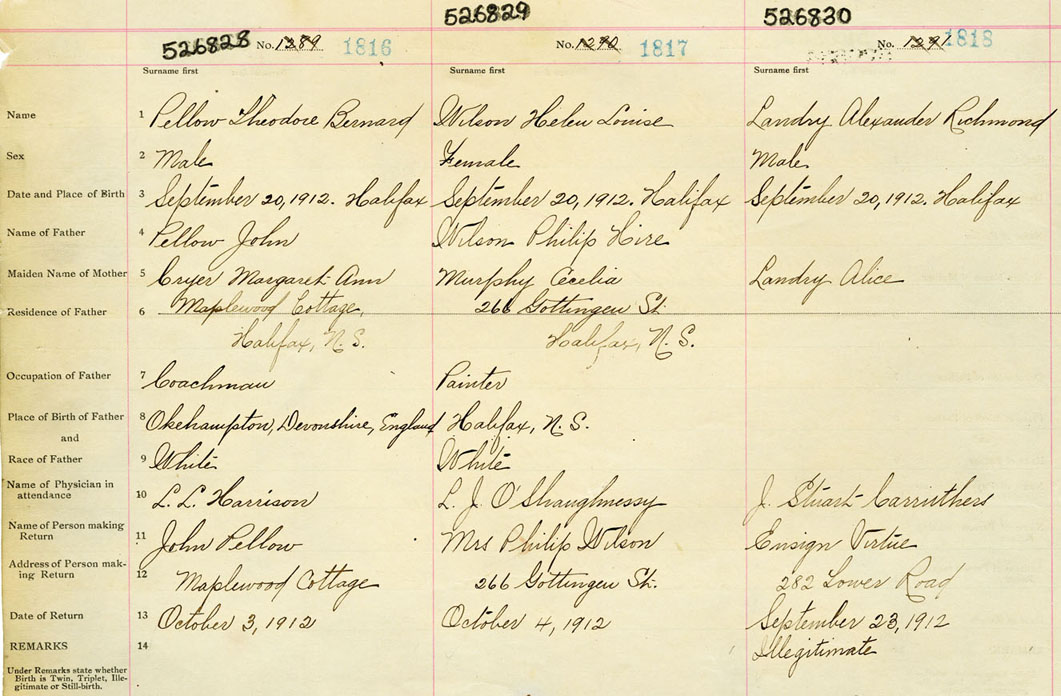 526828 No. 1289 1816 526829 No. 1290 1817 526830 No. 1291 1818
Surname first Surname first Surname first
Name 1 Pellow Theodore Bernard Wilson Helen Louise Landry Alexander Richmond
Sex 2 Male Female Male
Date and Place of Birth 3 September 20, 1912. Halifax September 20, 1912. Halifax September 20, 1912. Halifax
Name of Father 4 Pellow John Wilson Philip Hire
Maiden Name of Mother 5 Cryer Margaret Ann Murphy Cecelia Landry Alice
Residence of Father 6 Maplewood Cottage, 266 Gottingen St.
Halifax, N.S. Halifax, N.S.
Occupation of Father 7 Coachman Painter
Place of Birth of Father 8 Okehampton, Devonshire, England Halifax, N.S.
and
Race of Father 9 White White
Name of Physician in
attendance 10 L. L. Harrison L. J. O'Shaughnessy J. Stuart Carruthers
Name of Person making
Return 11 John Pellow Mrs Philip Wilson Ensign Virtue
Address of Person mak-
ing Return 12 Maplewood Cottage 266 Gottingen St. 282 Lower Road
Date of Return 13 October 3, 1912 October 4, 1912 September 23, 1912
REMARKS 14 Illegitimate
Under Remarks state whether
Birth is Twin, Triplet, Ille-
gitimate or Still-birth.